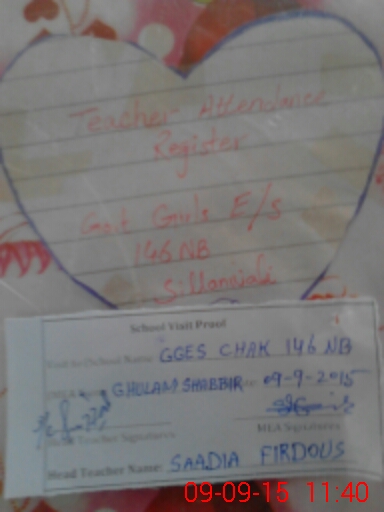 Teacher Attendance
Register
Govt Girls E/S
146 NB
Sillanwali
School Visit Proof
School Name: GGES CHAK 146 NB
GHULAM SHABBIR 09-9-2015
MEA Signatures
Head Teacher Signatures
Head Teacher Name: SAADIA FIRDOUS
09-09-15 11:40